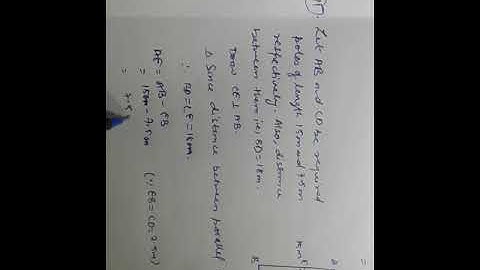 Let AB and CD be required
poles of length 15m and 7.5m
respectively. Also, distance
between them (ie) BD = 18m.
Draw CE ⊥ AB.
Since distance between parallel
∴ BD = CE = 18m.
AE = AB - EB
= 15m - 7.5m (∵ EB = CD = 7.5m)
= 7.5
15m